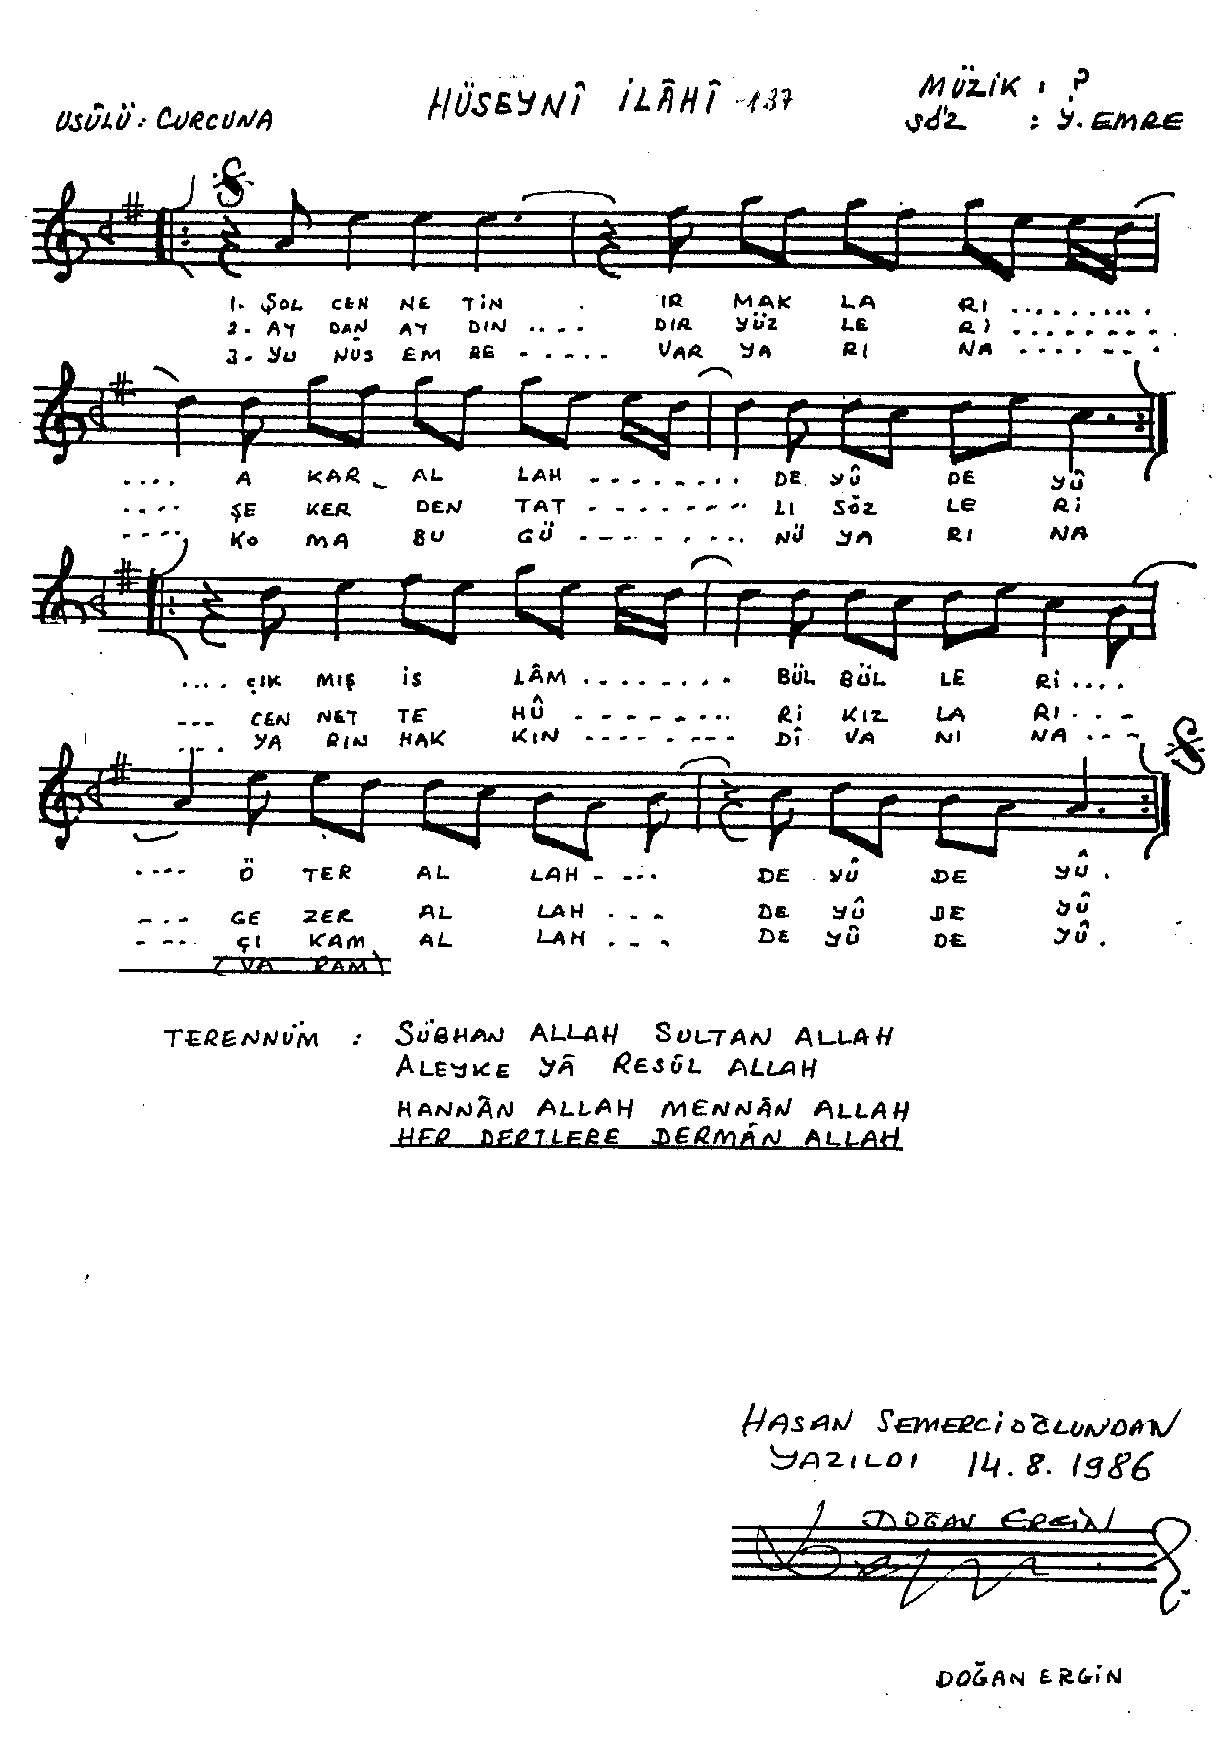 HÜSEYNÎ İLÂHÎ -137
MÜZİK : ?
USÛLÜ : CURCUNA
SÖZ : Y. EMRE
1. ŞOL CEN NE TİN . IR MAK LA RI ..........
2- AY DAN AY DIN .... DIR YÜZ LE Rİ ..........
3- YU NÜS EM RE ...... VAR YA RI NA ........
.... A KAR AL LAH ......... DE YÛ DE YÛ
.... ŞE KER DEN TAT ......... LI SÖZ LE Rİ
.... KO MA BU GÜ ......... NÜ YA RI NA
.... ÇIK MIŞ İS LÂM ......... BÜL BÜL LE Rİ ....
--- CEN NET TE HÛ ......... Rİ KIZ LA RI . . -
.... YA RIN HAK KIN ......... DÎ VA NI NA . . - -
.... Ö TER AL LAH - . . . DE YÛ DE YÛ .
.... GE ZER AL LAH . . . - DE YÛ DE YÛ
.... ÇI KAM AL LAH . - . . DE YÛ DE YÛ .
(VA RAM)
TERENNÜM : SÜBHAN ALLAH SULTAN ALLAH
ALEYKE YÂ RESÛL ALLAH
HANNÂN ALLAH MENNÂN ALLAH
HER DERTLERE DERMÂN ALLAH
HASAN SEMERCİOĞLUNDAN
YAZILDI 14.8.1986
DOĞAN ERGİN
DOĞAN ERGİN